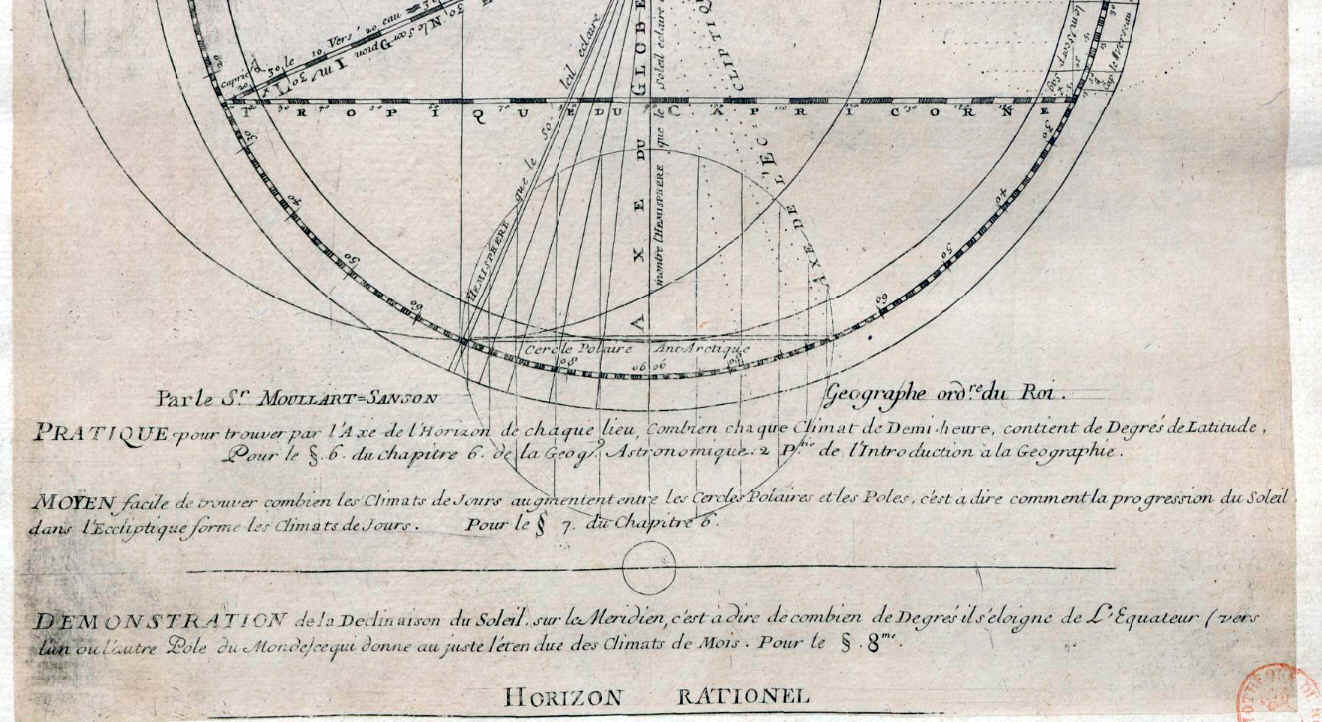 TROPIQUE DU CAPRICORNE
AXE DU GLOBE
AXE DE L'ECLIPTIQ
HEMISPHERE que le so leil eclaire
montre l'HEMISPHERE que le soleil eclaire
Cercle Polaire AntArctique
Par le Sr. MOULLART=SANSON Geographe ord.re du Roi.
PRATIQUE pour trouver par l'Axe de l'Horizon de chaque lieu, Combien chaque Climat de Demi-heure, contient de Degrés de Latitude,
Pour le §. 6. du chapitre 6. de la Geog? Astronomique. 2 P.tie de l'Introduction a la Geographie.
MOYEN facile de trouver combien les Climats de Jours augmentent entre les Cercles Polaires et les Poles, c'est a dire comment la progression du Soleil
dans l'Eccliptique forme les Climats de Jours. Pour le § 7. du Chapitre 6.
DEMONSTRATION de la Declinaison du Soleil, sur le Meridien, c'est à dire de combien de Degrés il s'éloigne de L'Equateur (vers
l'un ou l'autre Pole du Monde) ce qui donne au juste l'éten due des Climats de Mois. Pour le §. 8me.
HORIZON RATIONEL